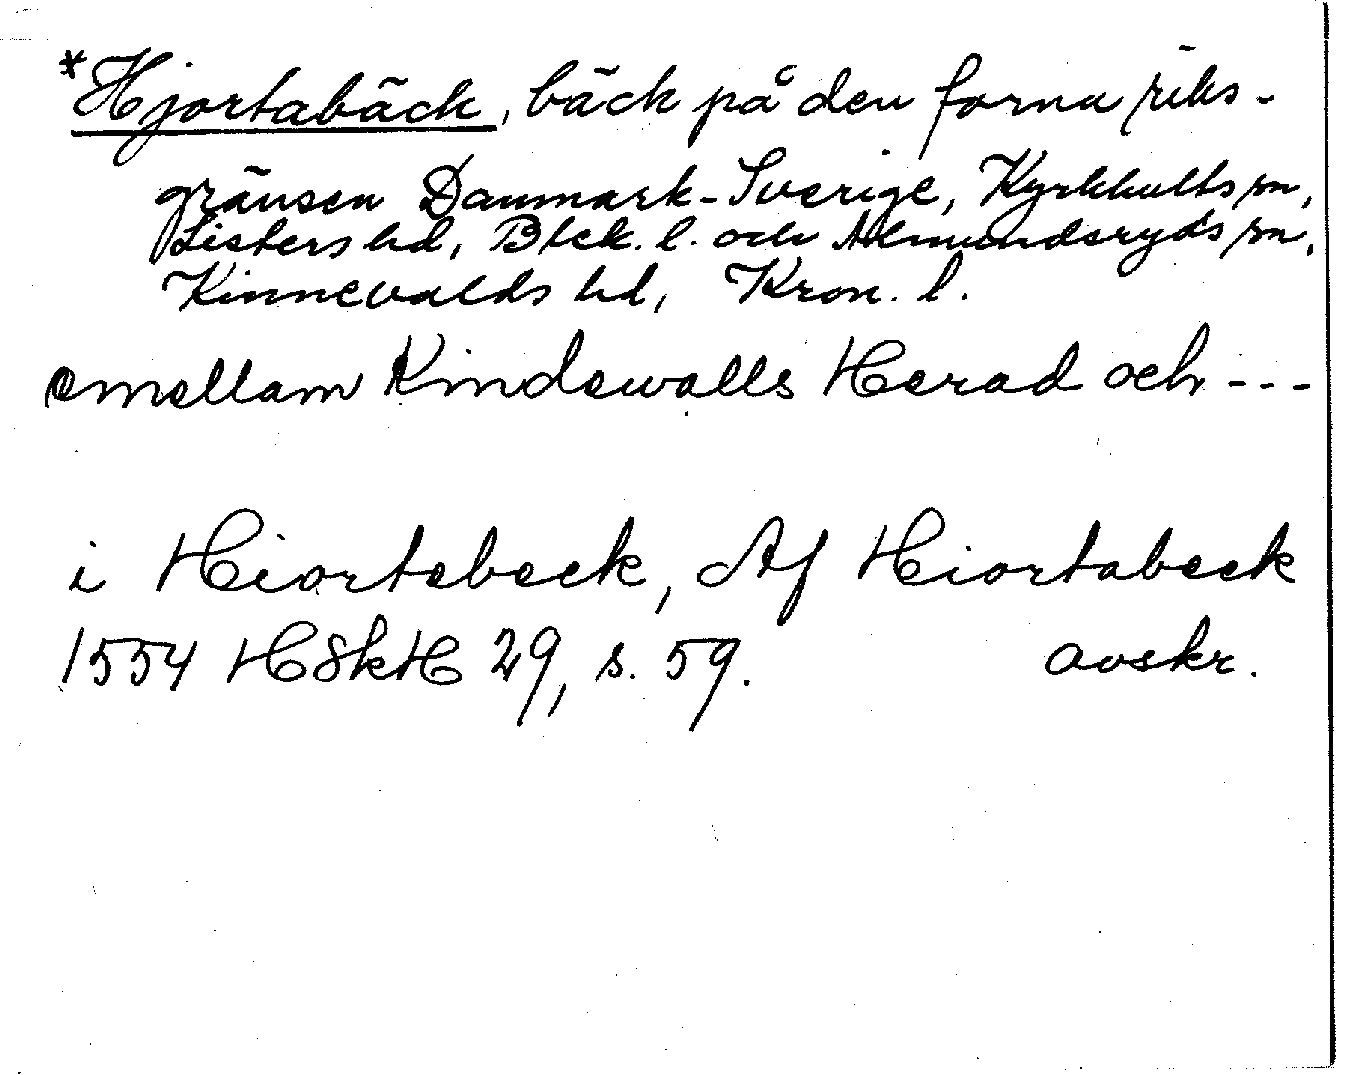 *Hjortabäck, bäck på den forna riks-
gränsen Danmark-Sverige, Kyrkhults sn,
Listers hd, Blek. l. och Almundsryds sn,
Kinnevalds hd, Kron. l.
emellam Kindewalls Herad och ---
i Hiortebeck, Af Hiortabeck
1554 HSkH 29, s. 59. avskr.